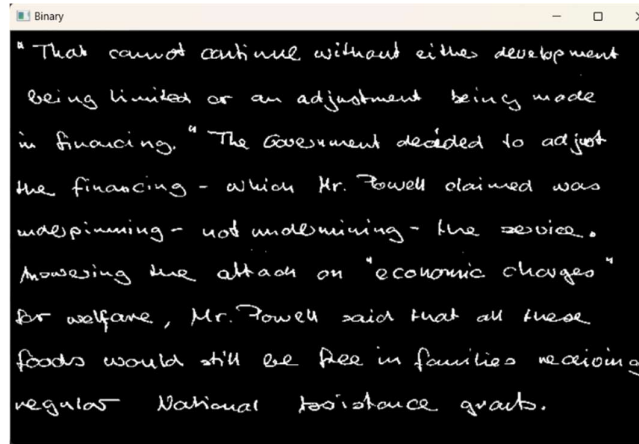 Binary
"That cannot continue without either development
being limited or an adjustment being made
in financing." The Government decided to adjust
the financing - which Mr. Powell claimed was
underpinning - not undermining - the service.
Answering the attack on "economic charges"
for welfare, Mr. Powell said that all these
foods would still be free in families receiving
regular National Assistance grants.